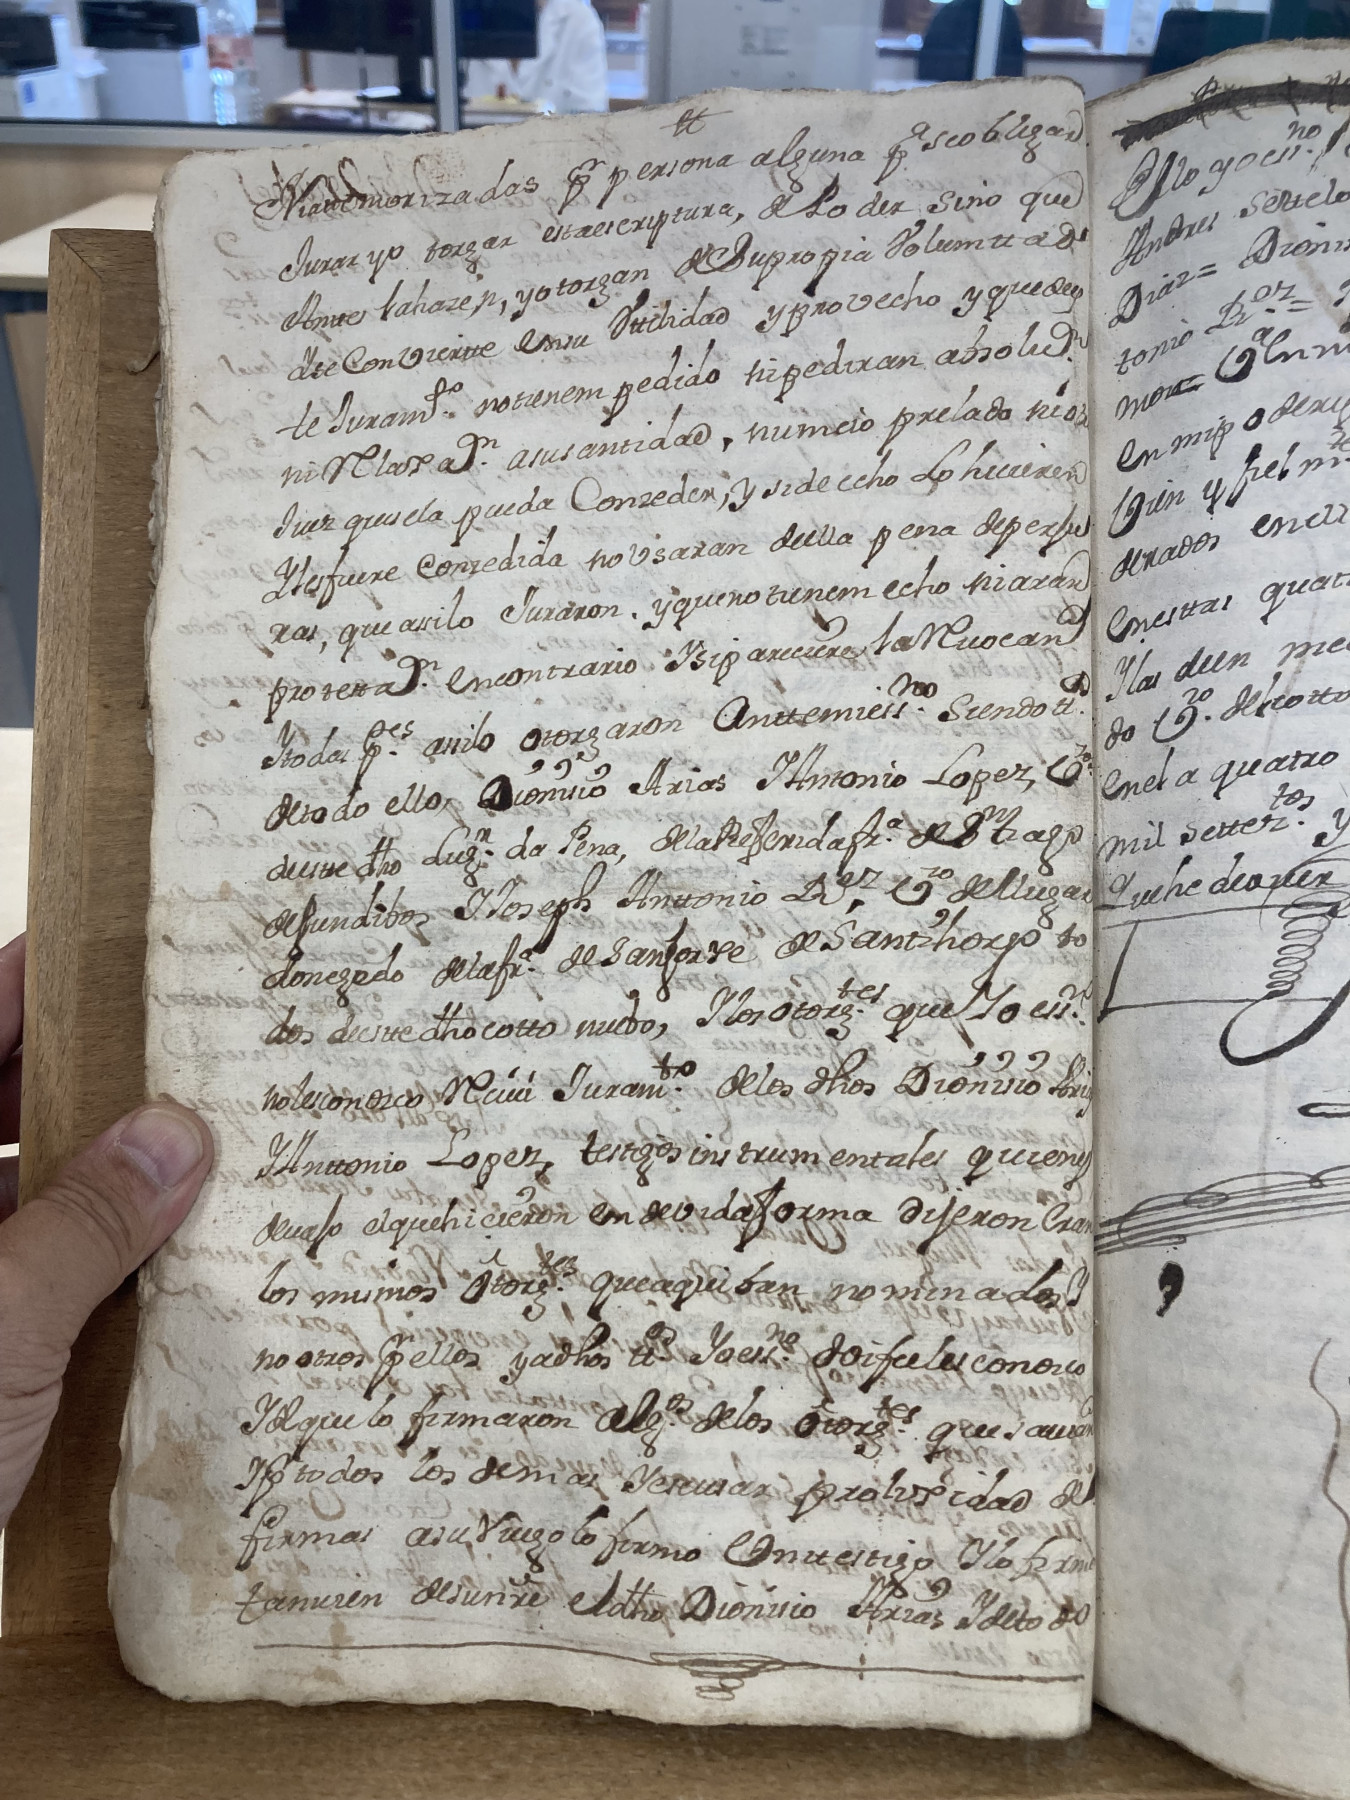 tt
Niatemorizadas pr persona alguna pa. seobligar
Jurar yo torgar estaescriptura, de Lo der Sino que
Antes lahazen, yotorgan de Supropia Volumttad
dteConvierte ensu Uttilidad yprovecho yquedeo
te Juramto. notienem pedido nipediran absoluon.
ni Relaxaon. asusantidad, nuncio prelado niotro
Juez quesela pueda Conzeder, y sideecho Lo hicieren
Ylesfuere conzedida nousaran della pena deperju
ras, que asilo Juraron. yquenotienem echo niaran
protestaon. encontrario Ysipareciere, laRevocan
Ytodas ptes. asilo otorgaron Anttemiessno. Siendo tts.
detodo ello, Dionisio Arias YAntonio Lopez, vos.
deeste dho Lugr. da Pena, delaReferidafra. de Sttiago
defundibos YJoseph Anttonio Rez. vzo del lugar
donegedo delafra. de sanjorxe de Santthorxo to
dos deeste dhocotto nuebo, Ylosotorgtes. que Yo essno.
nolesconozco Reciui Juramto. delos dhos Dionisio Arias
YAnttonio Lopez, testigos instrumentales quienes
deuajo elquehicieron en devidaforma dijeron Eran
los mismos Otorgtes. queaqui ban nominados Y
no otros pr ellos yadhos tts. Yoessno. doifeelesconozco
Ydequelo firmaron Algs. delos Otorgtes. que sauian
Ypr todos los demas Yescusar prolixidad de
firmas asu Ruego lo firmo Untestigo Ylo firmo
tamuien desunre eldho Dionisio Arias Ydeto do
Ello yoessno.
Andres
Diaz = Dionis
tonio Rez. =
mor=
en mipoder y
Vien y fiel mte.
derados enell
enesttas quatr
Ylas deen med
do Vzo. delcotto
enel a quatro
mil settezttos. y